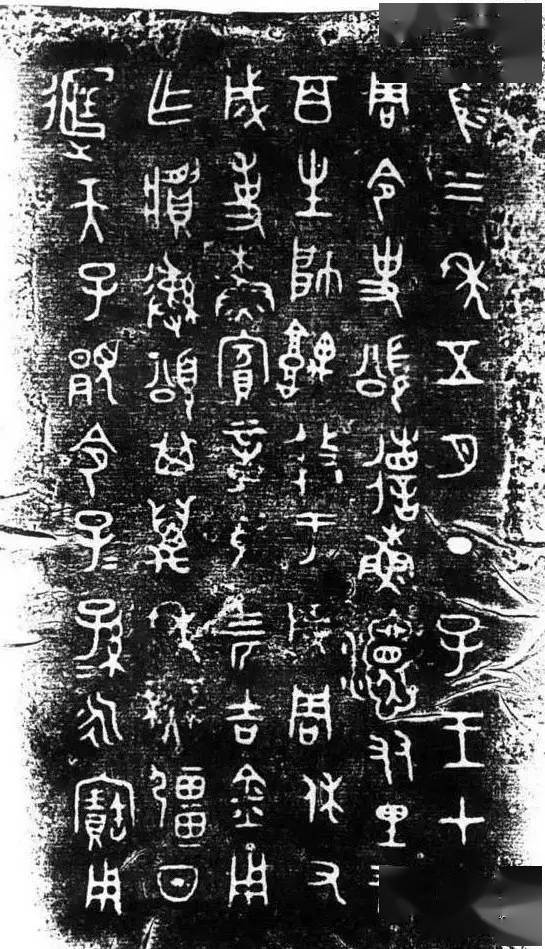 隹三年五月丁子王才
周令史頌省蘇𤅊友里
百生帥堣盩于成周休又
成事蘇賓章馬四匹吉金用
乍䵼彝頌其萬年無疆日
𨖴天子顯令子=孫=永寶用